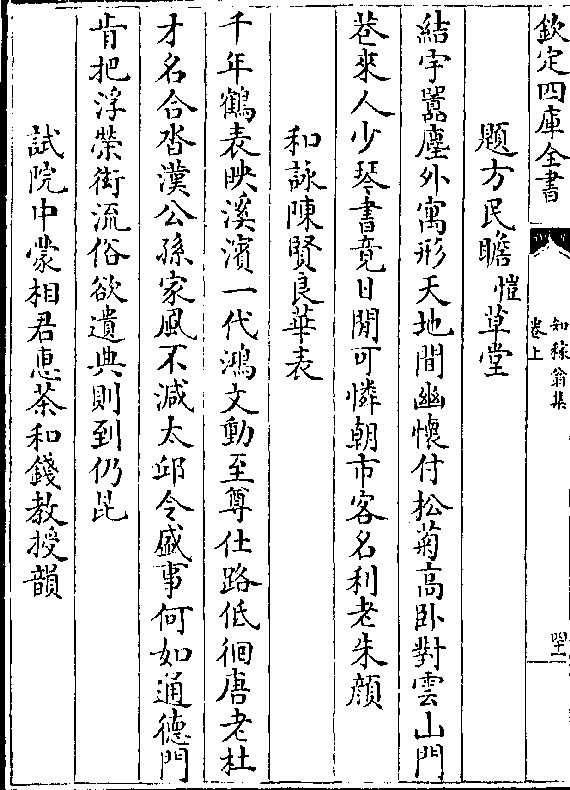 欽定四庫全書
知稼翁集
卷上
題方民瞻愷草堂
結宇囂塵外寓形天地間幽懷付松菊高卧對雲山門
巷來人少琴書竟日閒可憐朝市客名利老朱顔
和詠陳賢良華表
千年鶴表映溪濱一代鴻文動至尊仕路低徊唐老杜
才名合沓漢公孫家風不減太邱令盛事何如通德門
肯把浮榮衒流俗欲遺典則到仍昆
試院中蒙相君惠茶和錢教授韻